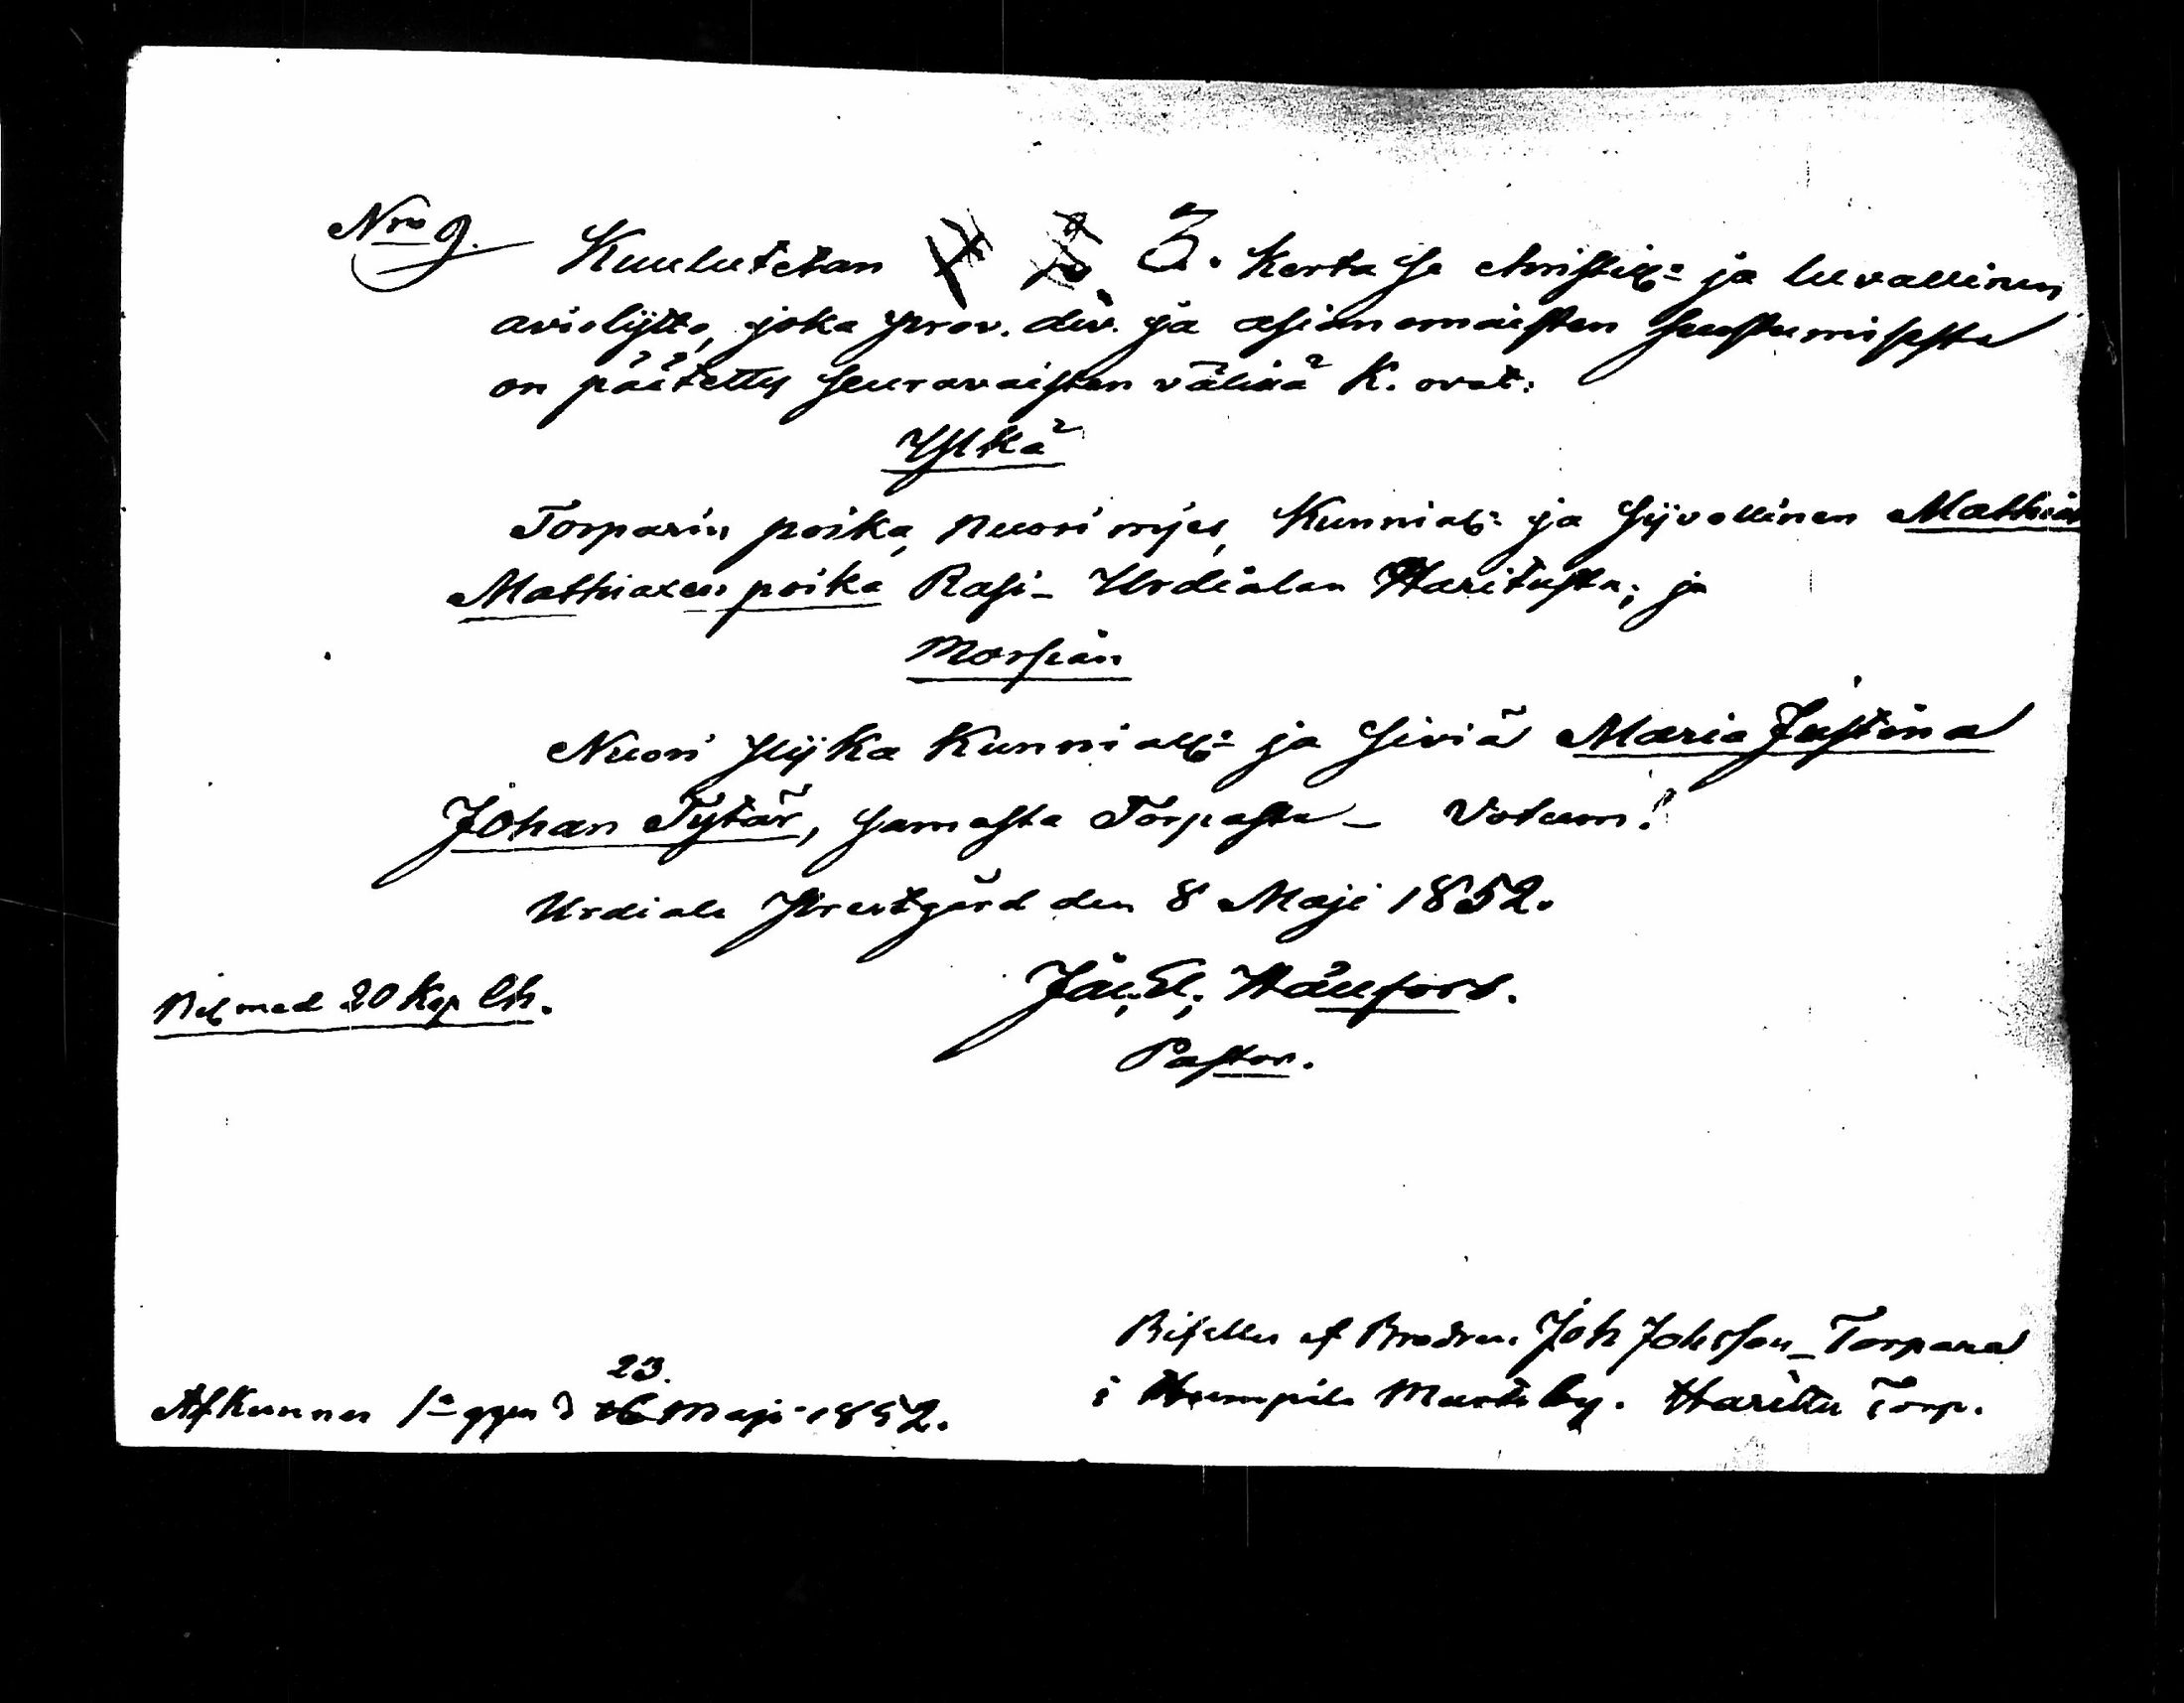 Nro 9. Kuulutetan 1. 2. 3. Kerta se christill: ja luvallinen
avioliitto, joka prov. div. ja asianomaisten suostumisesta
on päätetty seuravaisten välillä K. ovat:
Ylkä
Torparin poika, Nuori mies, Kunnial: ja siivollinen Mathias
Mathiaxen poika Rasi- Urdialan Haritusta; ja
Morsian
Nuori piika Kunniall: ja siviä Maria Justina
Johan Tytär, samasta Torpasta - Votum!
Urdiala Prestgård den 8 Maji 1852.
Pastor.
med 20 Kop
Bifalles af Brodren Joh Johsson Torpare
i by. Haritu Torp.
23.
Afkunnes 1a ggn d 16 Maji 1852.